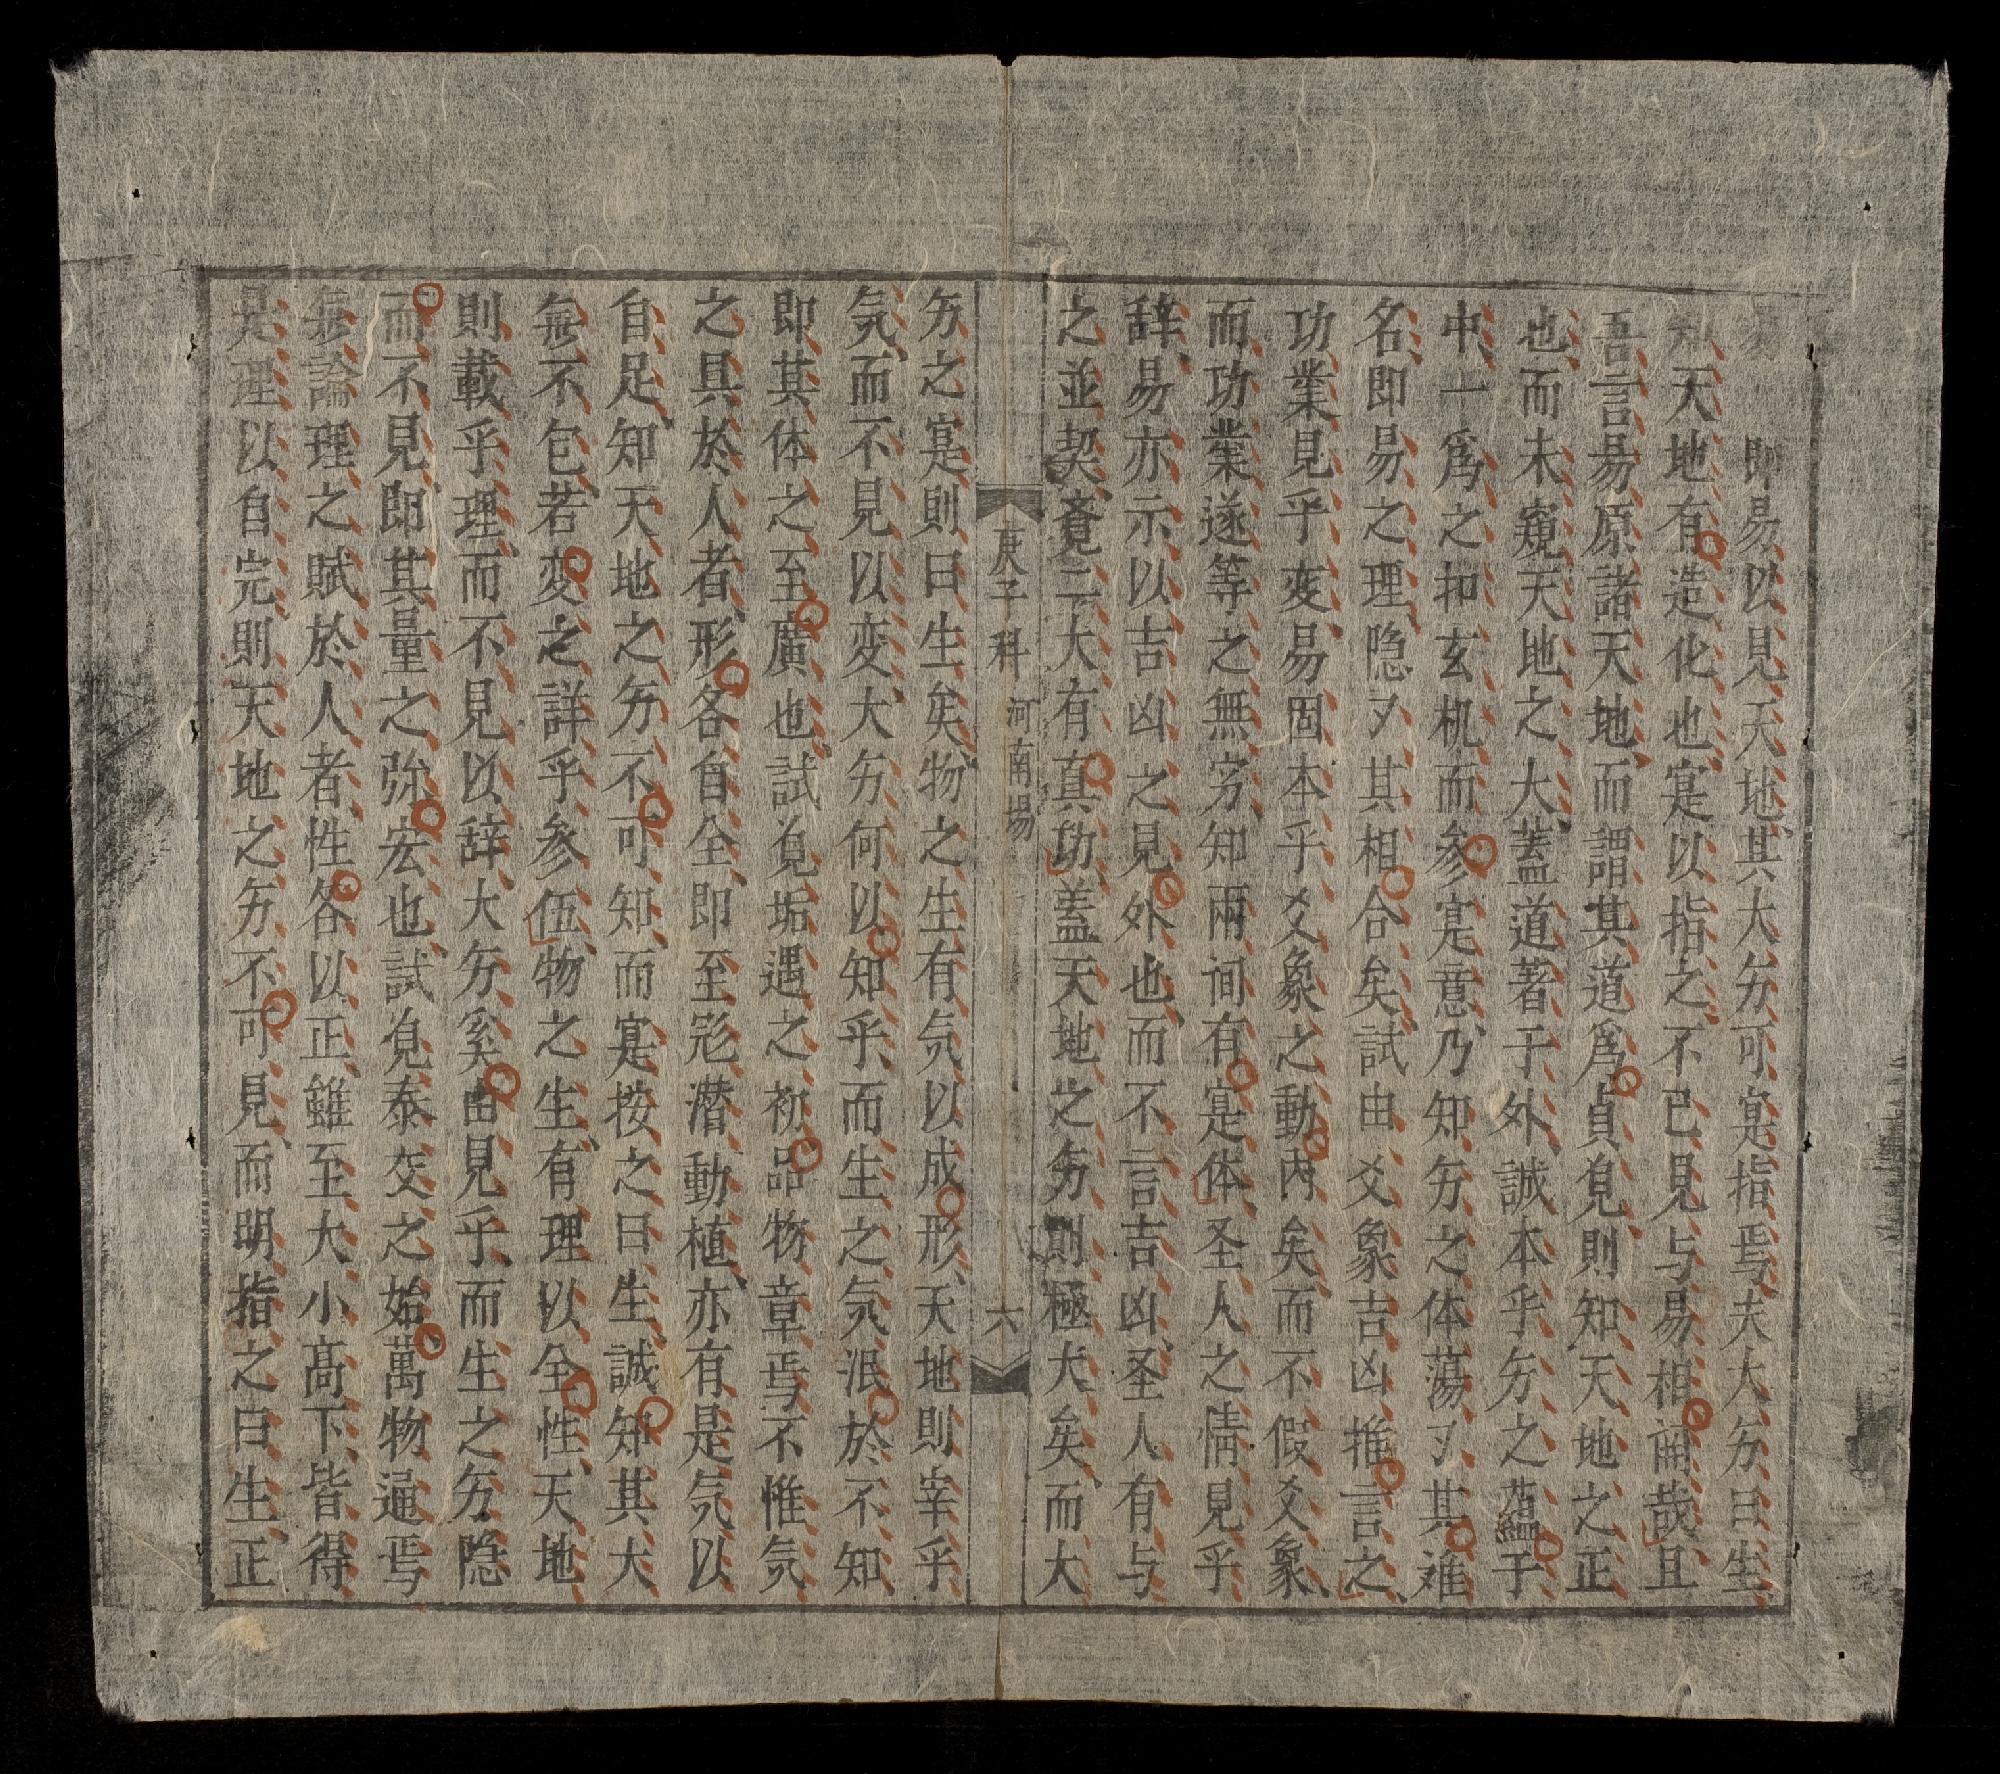 即易以見天地其大夯可寔指焉夫大夯曰生
天地有造化也寔以指之不已見与易相通哉且
吾言易原諸天地而謂其道爲貞覓則知天地之正
也而未窺天地之大蓋道著于外誠本乎夯之蘊于
中一爲之扣玄机而參寔意乃知夯之体蕩〻其难
名即易之理隐〻其相合矣試由爻象吉凶推言之
功業見乎变易固本乎爻象之動内矣而不假爻象
而功業遂等之無穷知兩间有寔体圣人之情見乎
辞易亦示以吉凶之見外也而不言吉凶圣人有与
之並契竟二大有真功蓋天地之夯則極大矣而大
庚子科 河南場 六
夯之寔則曰生矣物之生有気以成形天地則宰乎
気而不見以变大夯何以知乎而生之気泯於不知
即其体之至廣也試覓垢遇之初品物章焉不惟気
之具於人者形各自全即至彪潛動植亦有是気以
自足知天地之夯不可知而寔按之曰生誠知其大
無不包若变之詳乎参伍物之生有理以全性天地
則載乎理而不見以辞大夯奚由見乎而生之夯隐
而不見即其量之弥宏也試覓泰交之始萬物通焉
無論理之賦於人者性各以正雖至大小高下皆得
是理以自完則天地之夯不可見而明指之曰生正